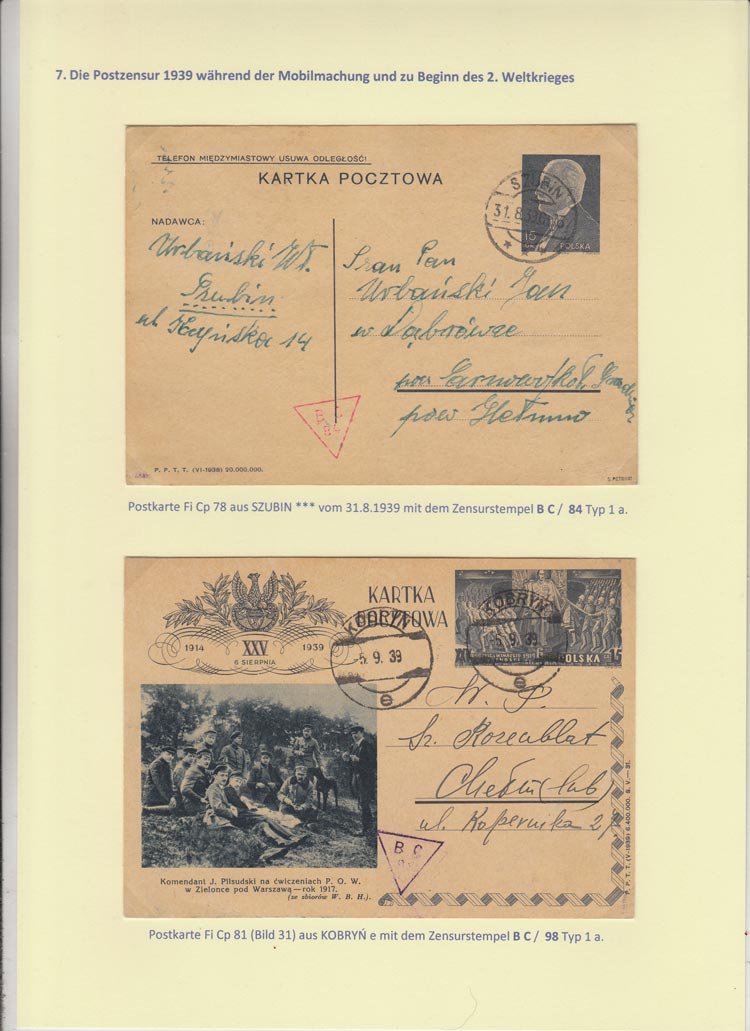 7. Die Postzensur 1939 während der Mobilmachung und zu Beginn des 2. Weltkrieges
TELEFON MIĘDZYMIASTOWY USUWA ODLEGŁOŚĆ!
KARTKA POCZTOWA
SZUBIN
31. 8.
15
POLSKA
NADAWCA:
Urbański Wł.
Szubin
ul Kcyńska 14
Pan
Urbański Jan
w Dąbrówze
pow
pow
P. P. T. T. (VI-1938) 20.000.000.
Postkarte Fi Cp 78 aus SZUBIN *** vom 31.8.1939 mit dem Zensurstempel B C / 84 Typ 1 a.
1914 XXV 1939
6 SIERPNIA
KARTKA
POCZTOWA
KOBRYŃ
-5. 9. 39
e
KOBRYŃ
-5. 9. 39
e
POLSKA 15
W. P.
Sz. Rozenblat
Chełm lub
ul. Kopernika
B C
Komendant J. Piłsudski na ćwiczeniach P. O. W.
w Zielonce pod Warszawą—rok 1917.
(ze zbiorów W. B. H.).
P. P. T. T. (V-1939) 6.400.000. S. V.—31.
Postkarte Fi Cp 81 (Bild 31) aus KOBRYŃ e mit dem Zensurstempel B C / 98 Typ 1 a.